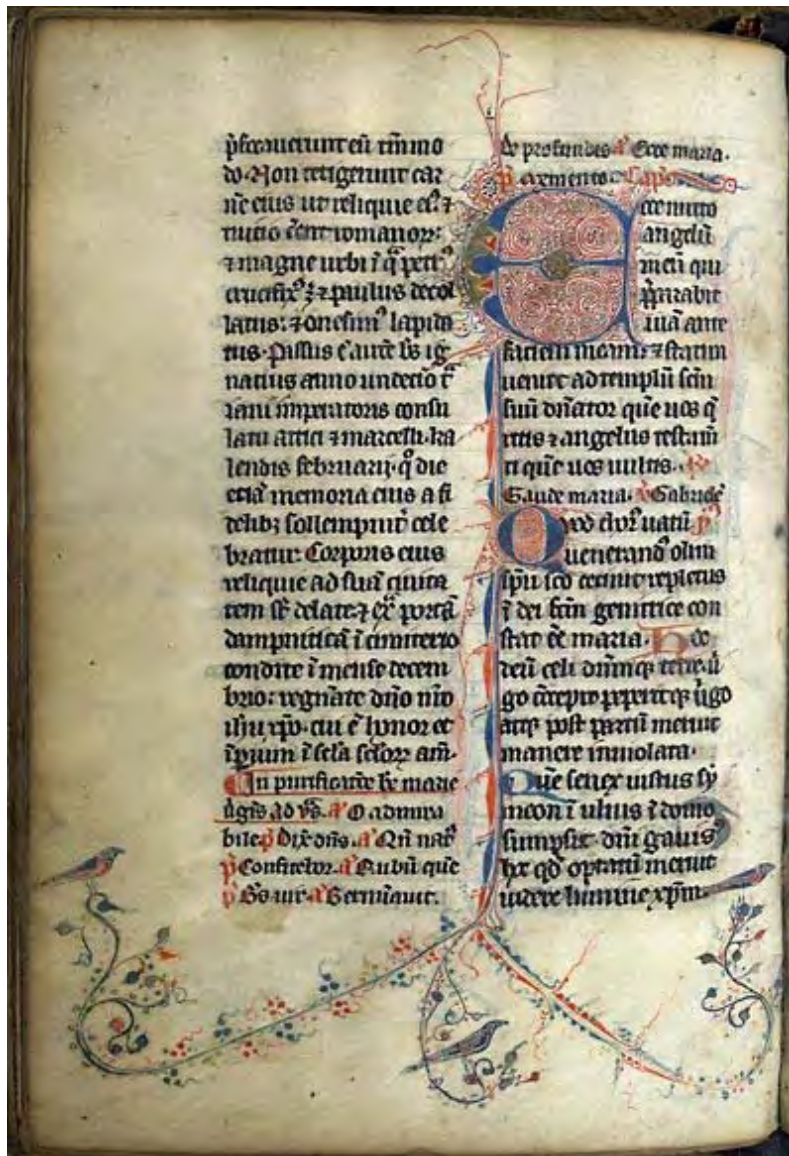 p̄focauerunt eū tm̄mo
do. Non tetigerunt car
nē eius ut reliquie eiꝰ ⁊
tuitio eēnt romanoꝝ:
⁊ magne urbi ī q̄ petrꝰ
crucifixꝰ ꝫ ⁊ paulus decol
latus: ⁊ onesimꝰ lapida
tus. Passus ē autē bs̄ ig
natius anno undecīo tͣ
iani imperatoris consu
latu attici ⁊ marcelli. ka
lendis februarij. qͦ die
etiā memoria eius a fi
delibꝫ sollempnit̄ cele
bratur. Corporis eius
reliquie ad suā ciuita
tem sͭ delate. ⁊ exͣ portā
dampniticā ī cimiterio
condite ī mense decem
brio: regnāte dn̄o nr̄o
ih̄u xp̄o. cui ē honor et
īperium ī sc̄la sc̄loꝝ am̄.
In purificatōe bē marie
ūgīs ad vs̄. a O admira
bile. p̄ Dix̄ dn̄s. a Qn̄ natꝰ
p̄ Confitebor. a Rubū quē
p̄ Bs̄ uir. a Germinauit.
de profundis a Ecce maria.
p̄ memento Capͫ
Ecce mitto
angelū
meū qui
p̄parabit
uiā ante
faciem meam ⁊ statim
ueniet ad templū scm̄
suū dn̄ator quē uos q̄
ritis ⁊ angelus testam̄
ti quē uos uultis. R
Gaude maria. v Gabrielē
Quod chorꝰ uatū
uenerandꝰ olim
spū scō cecinit repletus
ī dei fcm̄ genitrice con
stat eē maria. Hec
deū celi dn̄mqꝫ terre ū
go cōcepit peperitqꝫ ūgo
atqꝫ post partū meruit
manere inuiolata.
Quē senex iustus sy
meon ī ulnis ī domo
sumpsit dn̄i gauisꝰ
hͦ qd̄ optatū meruit
uidere lumine xp̄m.